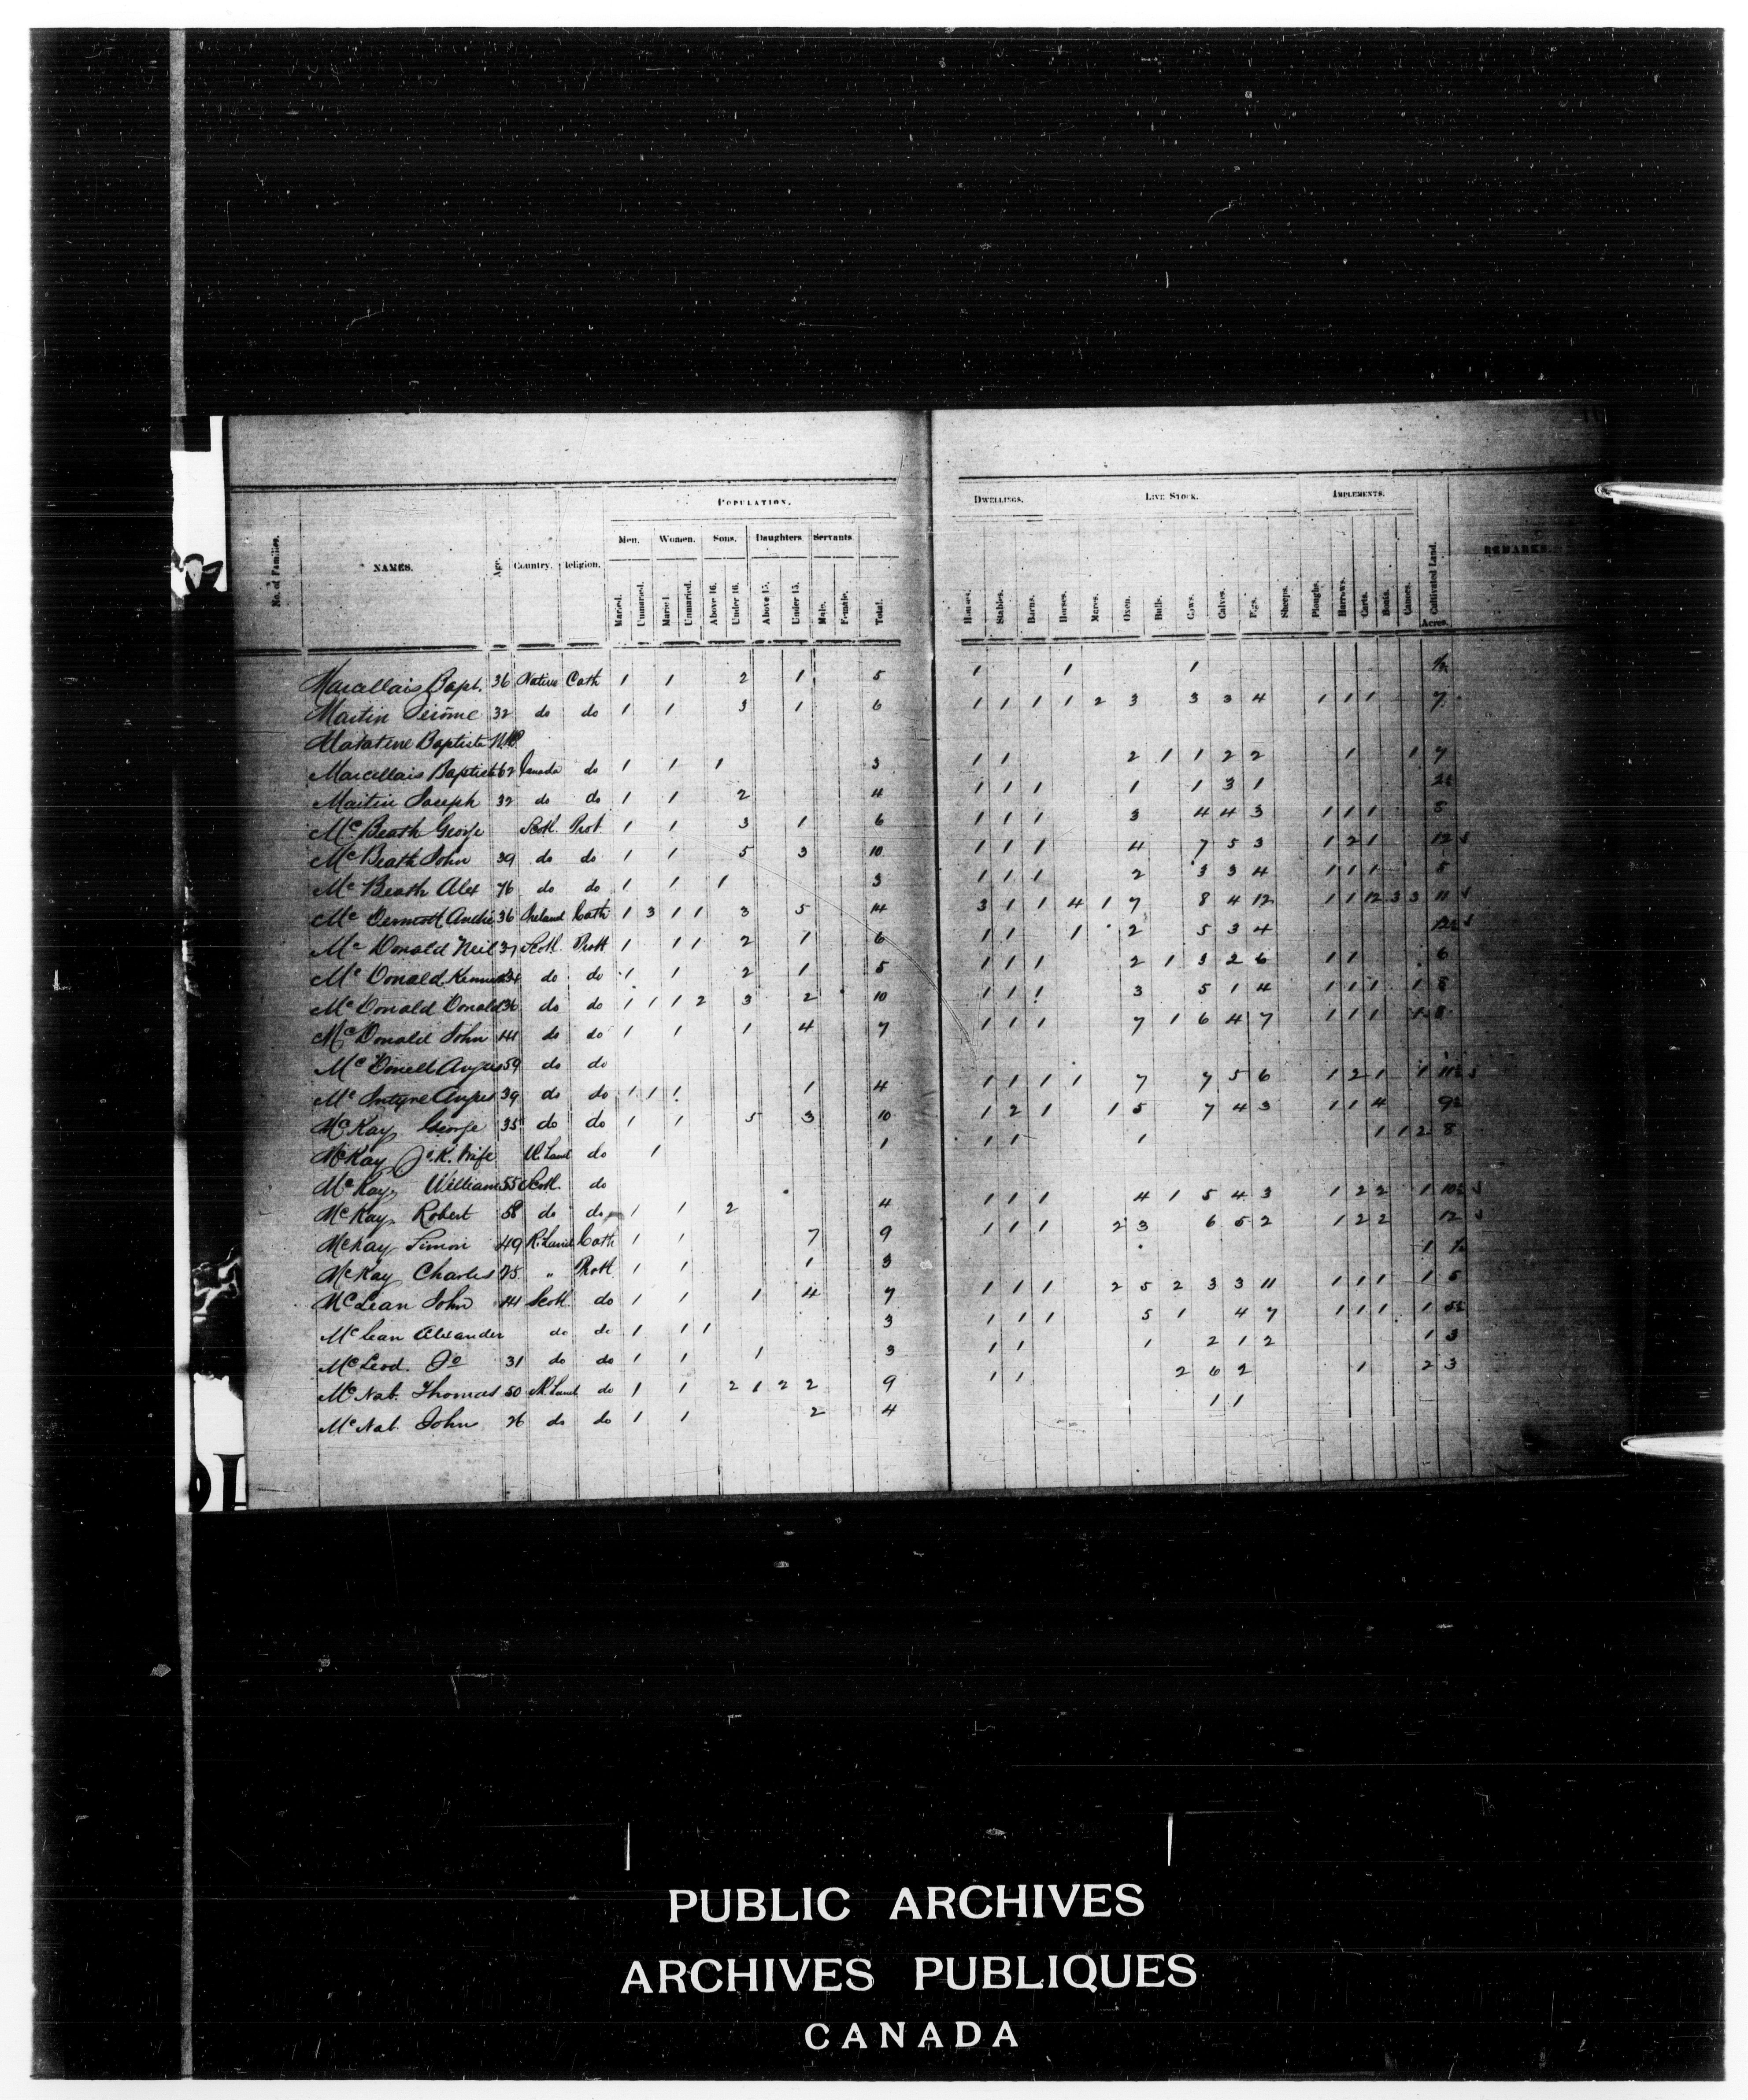 POPULATION.
DWELLINGS. LIVE STOCK. IMPLEMENTS.
No. of Families. NAMES. Age. Country. Religion. Men. Women. Sons. Daughters. Servants. REMARKS.
Married. Unmarried. Married. Unmarried. Above 16. Under 16. Above 15. Under 15. Male. Female. Total. Houses. Stables. Barns. Horses. Mares. Oxen. Bulls. Cows. Calves. Pigs. Sheeps. Ploughs. Harrows. Carts. Boats. Canoes. Cultivated Land.
Acres.
Marcellais Bapt. 36 Native Cath 1 1 2 1 5 1 1 1 ½
Martin Jérôme 32 do do 1 1 3 1 6 1 1 1 1 2 3 3 3 4 1 1 1 7
Baptiste
Marcellais Baptiste 62 Canada do 1 1 1 3 1 1 2 1 1 2 2 1 1 7
Martin Joseph 32 do do 1 1 2 4 1 1 1 1 1 3 1 2½
Mc Beath George Scotl. Prot. 1 1 3 1 6 1 1 1 3 4 4 3 1 1 1 8
Mc Beath John 39 do do 1 1 5 3 10 1 1 1 4 7 5 3 1 2 1 12
Mc Beath Alex 76 do do 1 1 1 3 1 1 1 2 3 3 4 1 1 1 5
Mc Dermott Andre 36 Ireland Cath 1 3 1 1 3 5 14 3 1 1 4 1 7 8 4 12 1 1 12 3 3 11
Mc Donald Neil 37 Scotl. Prott 1 1 1 2 1 6 1 1 1 2 5 3 4 12½
Mc Donald Kenneth 34 do do 1 1 2 1 5 1 1 1 2 1 3 2 6 1 1 6
Mc Donald Donald 36 do do 1 1 1 2 3 2 10 1 1 1 3 5 1 4 1 1 1 1 8
Mc Donald John 44 do do 1 1 1 4 7 1 1 1 7 1 6 4 7 1 1 1 1 8
Mc Donell Angus 59 do do
Mc Intyre Angus 39 do do 1 1 1 1 4 1 1 1 1 7 7 5 6 1 2 1 1 11½
McKay George 35 do do 1 1 5 3 10 1 2 1 1 5 7 4 3 1 1 4 9½
McKay Jn. R. Wife do 1 1 1 1 1 1 1 2 8
McKay William 55 Scotl. do
McKay Robert 58 do do 1 1 2 4 1 1 1 4 1 5 4 3 1 2 2 1 10½
McKay Simon 49 R. Land Cath 1 1 7 9 1 1 1 2 3 6 5 2 1 2 2 12
McKay Charles 75 " Prott 1 1 1 3 1 ½
McLean John 44 Scotl do 1 1 1 4 7 1 1 1 2 5 2 3 3 11 1 1 1 1 5
McLean Alexander do do 1 1 1 3 1 1 1 5 1 4 7 1 1 1 1 5½
McLeod. Jo 31 do do 1 1 1 3 1 1 1 2 1 2 1 3
McNab. Thomas 50 do 1 1 2 1 2 2 9 1 1 2 6 2 1 2 3
McNab. John 26 do do 1 1 2 4 1 1
PUBLIC ARCHIVES
ARCHIVES PUBLIQUES
CANADA